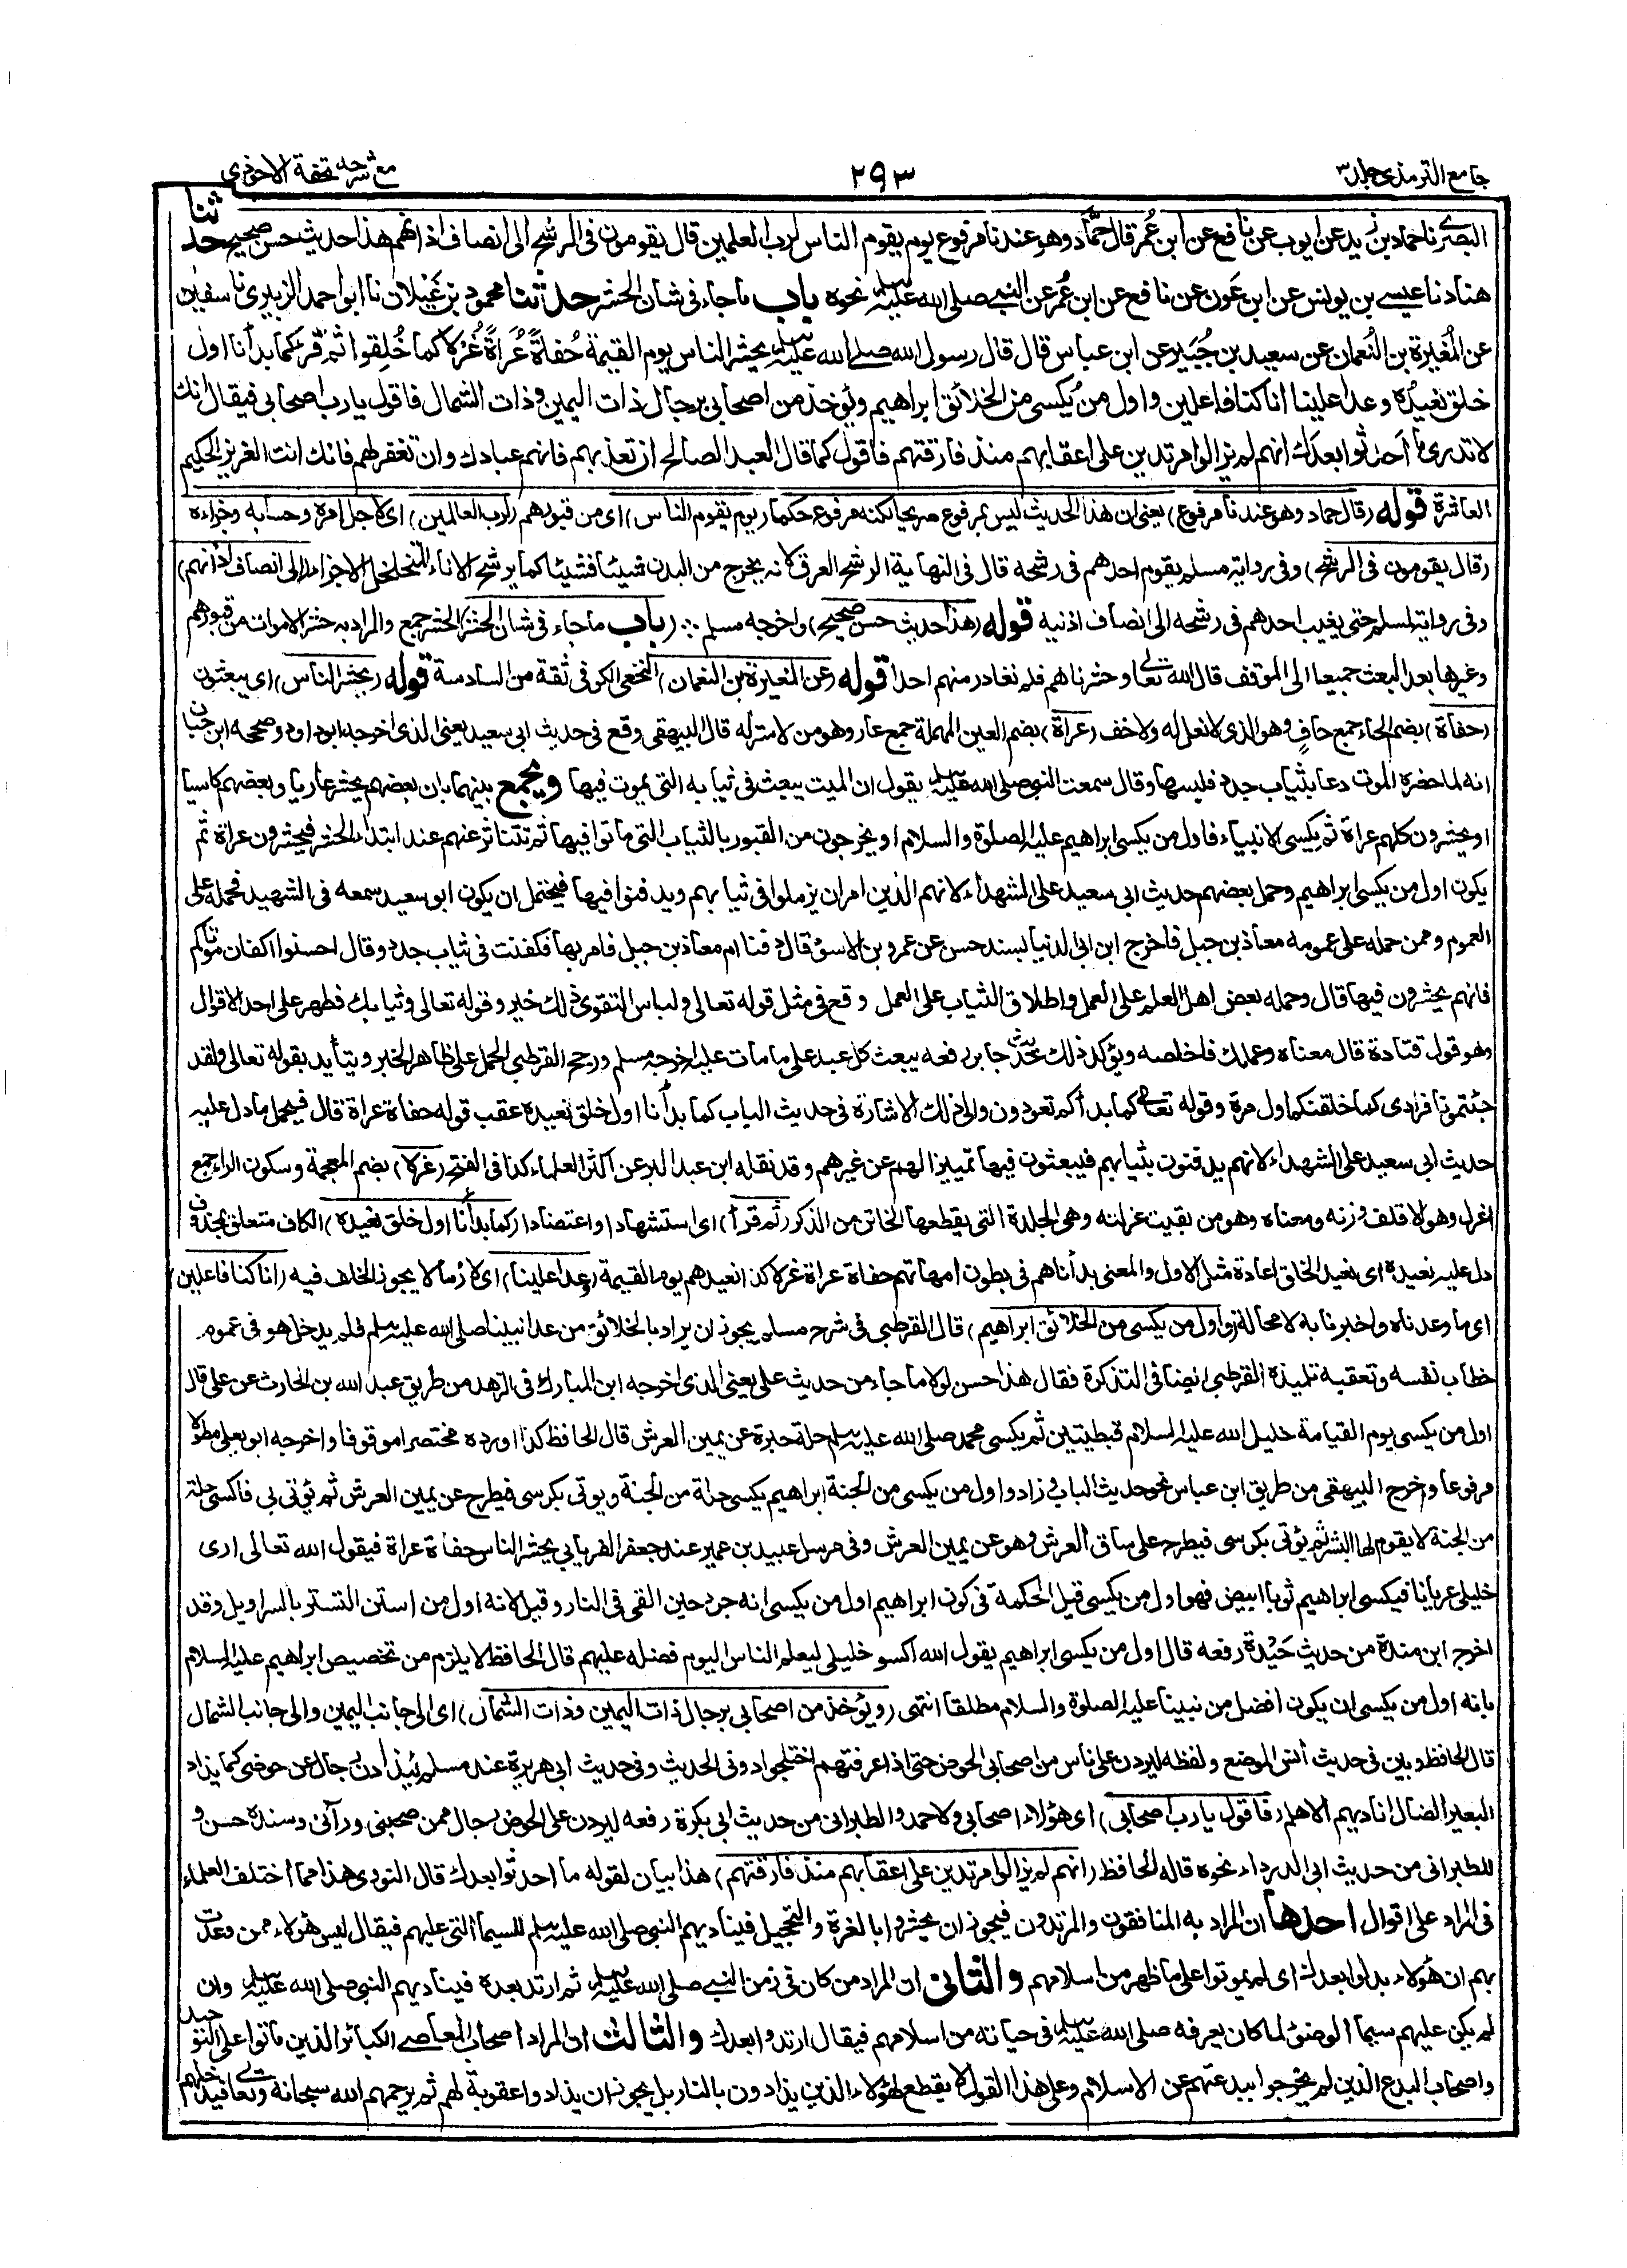 جامع الترمذى جلد ٣
٢٩٣
مع شرحه تحفة الاحوذى
البصرى نا حماد بن زيد عن ايوب عن نافع عن ابن عُمر قال حمَّاد وهو عندنا مرفوع يوم يقوم الناس لرب العلمين قال يقومون فى الرشح الى انصاف اذانهم هذا حديث حسن صحيح حدثنا
هناد نا عيسى بن يونس عن ابن عَون عن نافع عن ابن عُمر عن النبى صلى الله عليه وسلم نحوه باب ما جاء فى شان الحشر حدثنا محمود بن غَيلان نا ابو احمد الزبيرى نا سفين
عن المُغيرة بن النُعمان عن سعيد بن جُبَير عن ابن عباس قال قال رسول الله صلى الله عليه وسلم يحشر الناس يوم القيمة حُفاةً عُراةً غُرْلا كما خُلِقوا ثم قرأ كما بدأنا اول
خلق نعيدُه وعدا علينا انا كنا فاعلين واول من يُكسى من الخلائق ابراهيم ويُوخذ من اصحابى برجال ذات اليمين وذات الشمال فاقول يا رب اصحابى فيقال انك
لا تدرى ما اَحدثوا بعدك انهم لم يزالوا مرتدين على اعقابهم منذ فارقتهم فاقول كما قال العبد الصالح ان تعذبهم فانهم عبادك وان تغفر لهم فانك انت العزيز الحكيم
العاشرة قوله (قال حماد وهو عندنا مرفوع) يعنى ان هذا الحديث ليس بمرفوع صريحا لكنه مرفوع حكما (يوم يقوم الناس) اى من قبورهم (لرب العالمين) اى لاجل امره وحسابه وجزاءه
(قال يقومون فى الرشح) وفى رواية مسلم يقوم احدهم فى رشحه قال فى النهاية الرشح العرق لانه يخرج من البدن شيئا فشيئا كما يرشح الاناء المتخلخل الاجزاء (الى انصاف اذانهم)
وفى رواية لمسلم حتى يغيب احدهم فى رشحه الى انصاف اذنيه قوله (هذا حديث حسن صحيح) واخرجه مسلم ؞ (باب ما جاء فى شان الحشر) الحشر جمع والمراد به حشر الاموات من قبورهم
وغيرها بعد البعث جميعا الى الموقف قال الله تعالى وحشرناهم فلم نغادر منهم احدا قوله (عن المغيرة بن النعمان) النخعى الكوفى ثقة من السادسة قوله (يحشر الناس) اى يبعثون
(حفاة) بضم الحاء جمع حافٍ وهو الذى لا نعل له ولا خف (عراة) بضم العين المهملة جمع عار وهو من لا ستر له قال البيهقى وقع فى حديث ابى سعيد يعنى الذى اخرجه ابو داود وصححه ابن حبان
انه لما حضره الموت دعا بثياب جدد فلبسها وقال سمعت النبى صلى الله عليه وسلم يقول ان الميت يبعث فى ثيابه التى يموت فيها ويجمع بينهما بان بعضهم يحشر عاريا وبعضهم كاسيا
او يحشرون كلهم عراة ثم يكسى الانبياء فاول من يكسى ابراهيم عليه الصلوة والسلام او يخرجون من القبور بالثياب التى ماتوا فيها ثم تتناثر عنهم عند ابتداء الحشر فيحشرون عراة ثم
يكون اول من يكسى ابراهيم وحمل بعضهم حديث ابى سعيد على الشهداء لانهم الذين امر ان يزملوا فى ثيابهم ويدفنوا فيها فيحتمل ان يكون ابو سعيد سمعه فى الشهيد فحمله على
العموم وممن حمله على عمومه معاذ بن جبل فاخرج ابن ابى الدنيا بسند حسن عن عمرو بن الاسود قال دفنا ام معاذ بن جبل فامر بها فكفنت فى ثياب جدد وقال احسنوا اكفان موتاكم
فانهم يحشرون فيها قال وحمله بعض اهل العلم على العمل واطلاق الثياب على العمل وقع فى مثل قوله تعالى ولباس التقوى ذلك خير وقوله تعالى وثيابك فطهر على احد الاقوال
وهو قول قتادة قال معناه وعملك فاخلصه ويؤكد ذلك حديث جابر رفعه يبعث كل عبد على ما مات عليه اخرجه مسلم ورجح القرطبى الحمل على ظاهر الخبر ويتأيد بقوله تعالى ولقد
جئتمونا فرادى كما خلقنكم اول مرة وقوله تعالى كما بدأكم تعودون والى ذلك الاشارة فى حديث الباب كما بدأنا اول خلق نعيده عقب قوله حفاة عراة قال فيحمل ما دل عليه
حديث ابى سعيد على الشهداء لانهم يدفنون بثيابهم فيبعثون فيها تمييزا لهم عن غيرهم وقد نقله ابن عبد البر عن اكثر العلماء كذا فى الفتح (غرلا) بضم المعجمة وسكون الراء جمع
اغرل وهو الاقلف وزنه ومعناه وهو من بقيت غرلته وهى الجلدة التى يقطعها الخاتن من الذكر (ثم قرأ) اى استشهادا واعتضادا (كما بدأنا اول خلق نعيده) الكاف متعلق بمحذوف
دل عليه نعيده اى نعيد الخلق اعادة مثل الاول والمعنى بدأناهم فى بطون امهاتهم حفاة عراة غرلا كذا نعيدهم يوم القيمة (وعدا علينا) اى لازما لا يجوز الخلف فيه (انا كنا فاعلين)
اى ما وعدناه واخبرنا به لا محالة (واول من يكسى من الخلائق ابراهيم) قال القرطبى فى شرح مسلم يجوز ان يراد بالخلائق من عدا نبينا صلى الله عليه وسلم فلم يدخل هو فى عموم
خطاب نفسه وتعقبه تلميذه القرطبى ايضا فى التذكرة فقال هذا حسن لولا ما جاء من حديث على يعنى الذى اخرجه ابن المبارك فى الزهد من طريق عبد الله بن الحارث عن على قال
اول من يكسى يوم القيامة خليل الله عليه السلام قبطيتين ثم يكسى محمد صلى الله عليه وسلم حلة حبرة عن يمين العرش قال الحافظ كذا اورده مختصرا موقوفا واخرجه ابو يعلى مطولا
مرفوعا واخرج البيهقى من طريق ابن عباس نحو حديث الباب وزاد واول من يكسى من الجنة ابراهيم يكسى حلة من الجنة ويوتى بكرسى فيطرح عن يمين العرش ثم يؤتى بى فاكسى حلة
من الجنة لا يقوم لها البشر ثم يؤتى بكرسى فيطرح على ساق العرش وهو عن يمين العرش وفى مرسل عبيد بن عمير عند جعفر الفريابى يحشر الناس حفاة عراة فيقول الله تعالى ارى
خليلى عريانا فيكسى ابراهيم ثوبا ابيض فهو اول من يكسى قيل الحكمة فى كون ابراهيم اول من يكسى انه جرد حين القى فى النار وقيل لانه اول من استن التستر بالسراويل وقد
اخرج ابن مندة من حديث حَيْدة رفعه قال اول من يكسى ابراهيم يقول الله اكسو خليلى ليعلم الناس اليوم فضله عليهم قال الحافظ لا يلزم من تخصيص ابراهيم عليه السلام
بانه اول من يكسى ان يكون افضل من نبينا عليه الصلوة والسلام مطلقا انتهى (ويؤخذ من اصحابى برجال ذات اليمين وذات الشمال) اى الى جانب اليمين والى جانب الشمال
قال الحافظ وبين فى حديث انس الموضع ولفظه ليردن على ناس من اصحابى الحوض حتى اذا عرفتهم اختلجوا دونى الحديث وفى حديث ابى هريرة عند مسلم ليذادن رجال عن حوضى كما يذاد
البعير الضال اناديهم الا هلم (فاقول يا رب اصحابى) اى هؤلاء اصحابى ولاحمد والطبرانى من حديث ابى بكرة رفعه ليردن على الحوض رجال ممن صحبنى ورآنى وسنده حسن و
للطبرانى من حديث ابى الدرداء نحوه قاله الحافظ (انهم لم يزالوا مرتدين على اعقابهم منذ فارقتهم) هذا بيان لقوله ما احدثوا بعدك قال النووى هذا مما اختلف العلماء
فى المراد على اقوال احدها ان المراد به المنافقون والمرتدون فيجوز ان يحشروا بالغرة والتحجيل فيناديهم النبى صلى الله عليه وسلم للسيما التى عليهم فيقال ليس هؤلاء ممن وعدت
بهم ان هؤلاء بدلوا بعدك اى لم يموتوا على ما ظهر من اسلامهم والثانى ان المراد من كان فى زمن النبى صلى الله عليه وسلم ثم ارتد بعده فيناديهم النبى صلى الله عليه وسلم وان
لم يكن عليهم سيما الوضوء لما كان يعرفه صلى الله عليه وسلم فى حياته من اسلامهم فيقال ارتدوا بعدك والثالث ان المراد اصحاب المعاصى الكبائر الذين ماتوا على التوحيد
واصحاب البدع الذين لم يخرجوا ببدعتهم عن الاسلام وعلى هذا القول لا يقطع لهؤلاء الذين يذادون بالنار بل يجوز ان يذادوا عقوبة لهم ثم يرحمهم الله سبحانه وتعالى فيدخلهم